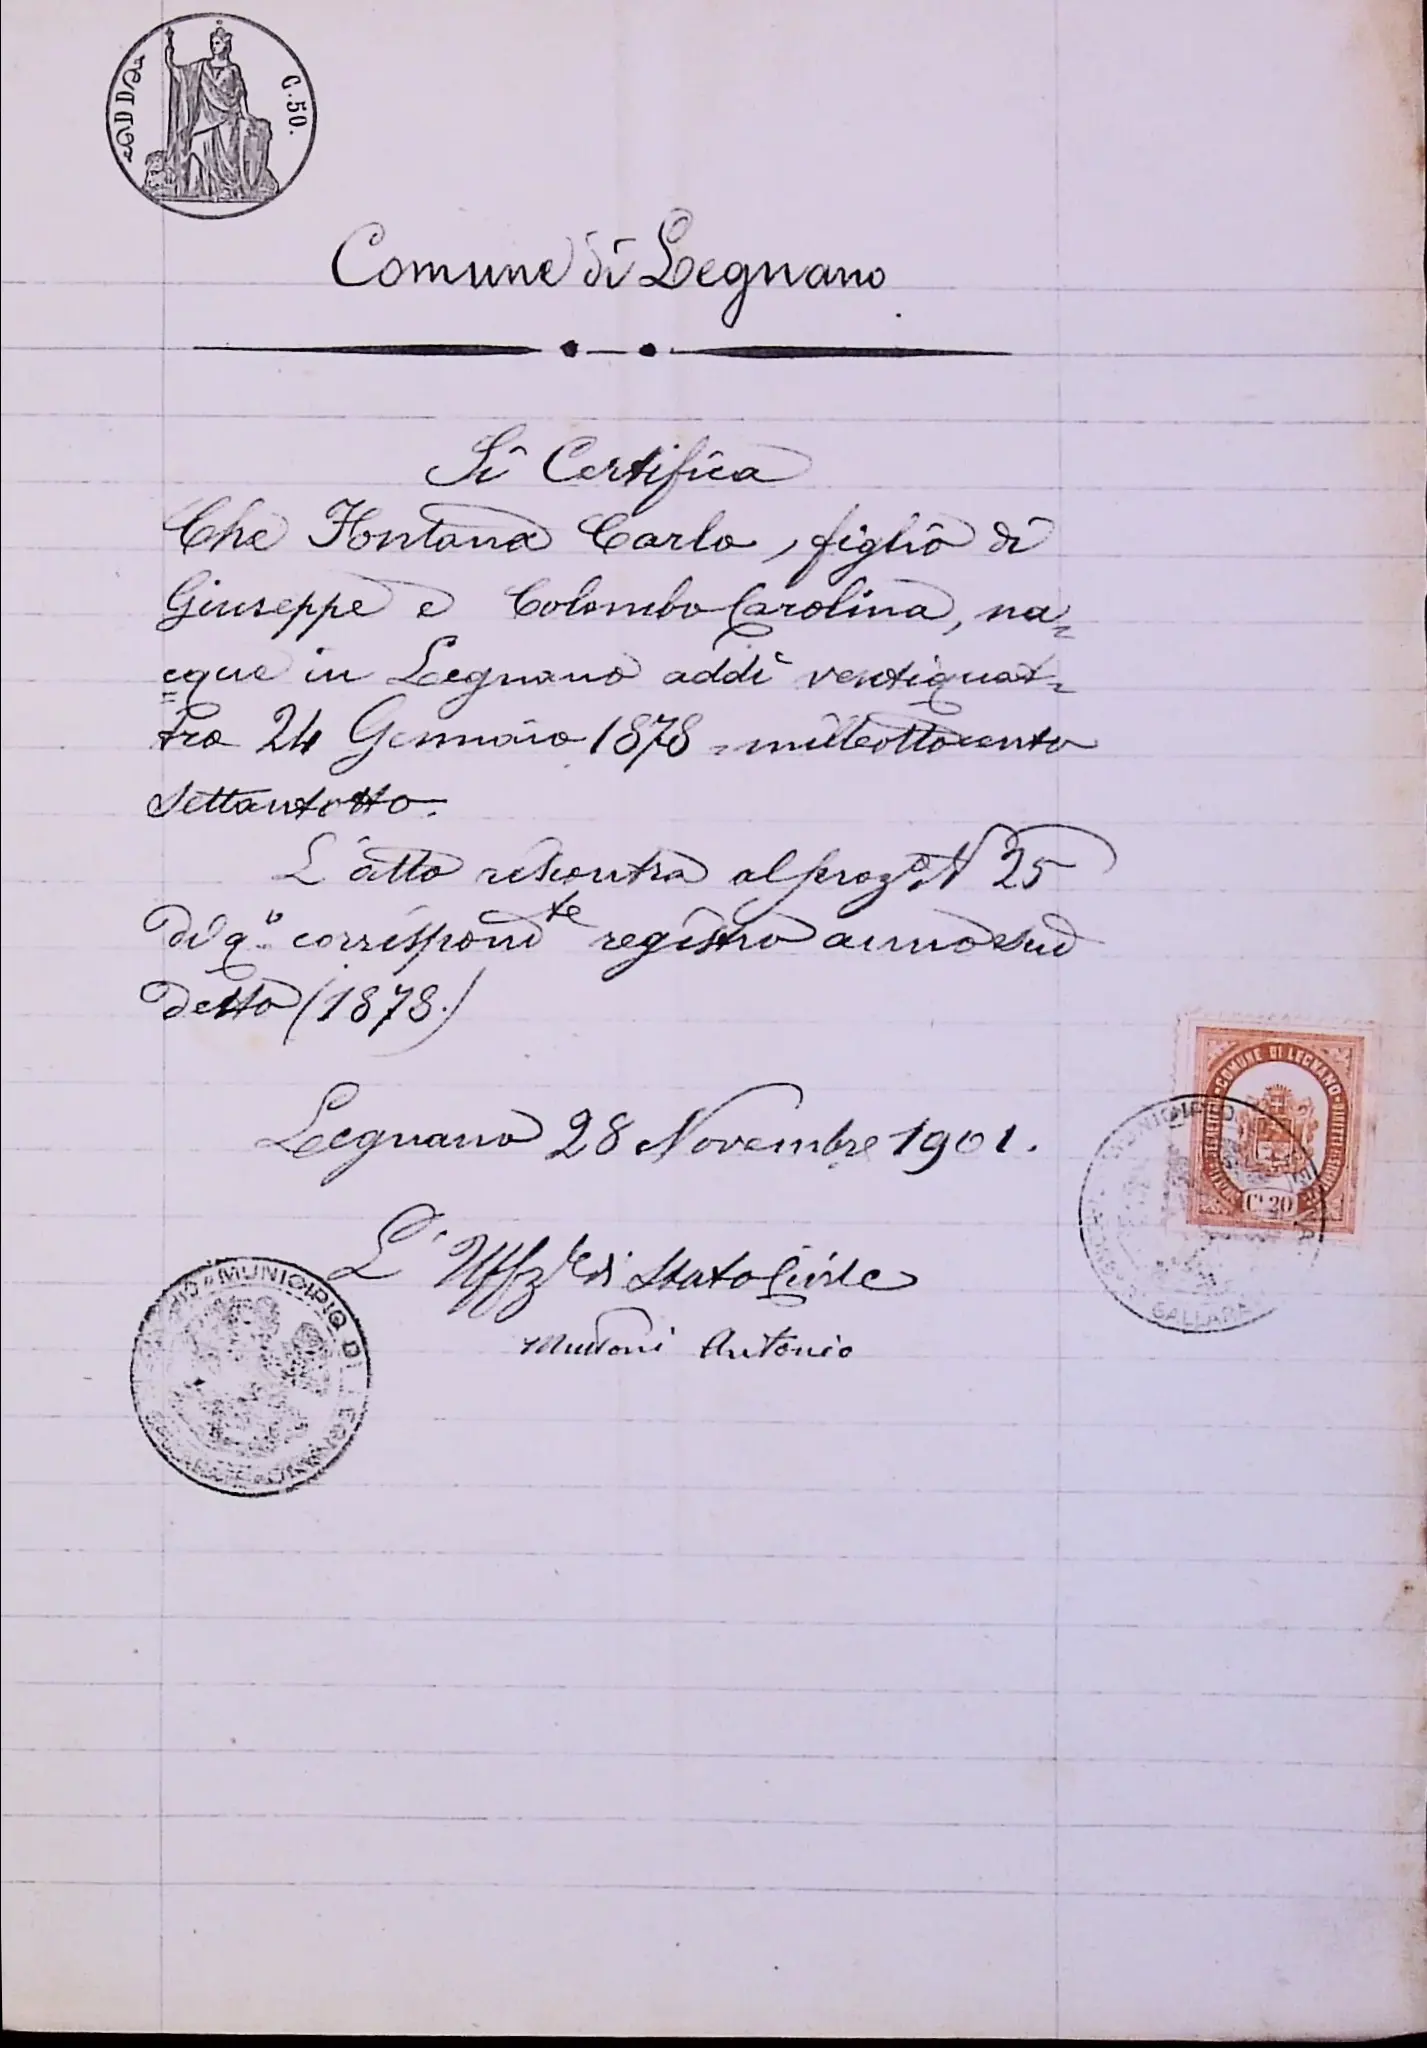 C. 50.
Comune di Legnano
Si Certifica
Che Fontana Carlo, figlio di
Giuseppe e Colombo Carolina, na=
=cque in Legnano addì ventiquat=
tro 24 Gennaio 1878 = milleottocento
settantotto.
L'atto riscontra al prog.º N 25
del corrispond.te registro anno sud
detto (1878.)
Legnano 28 Novembre 1901.
L'Uffz.le di Stato Civile
Antonio
MUNICIPIO DI LEGNANO
COMUNE DI LEGNANO
Ct 20
MUNICIPIO
GALLARA